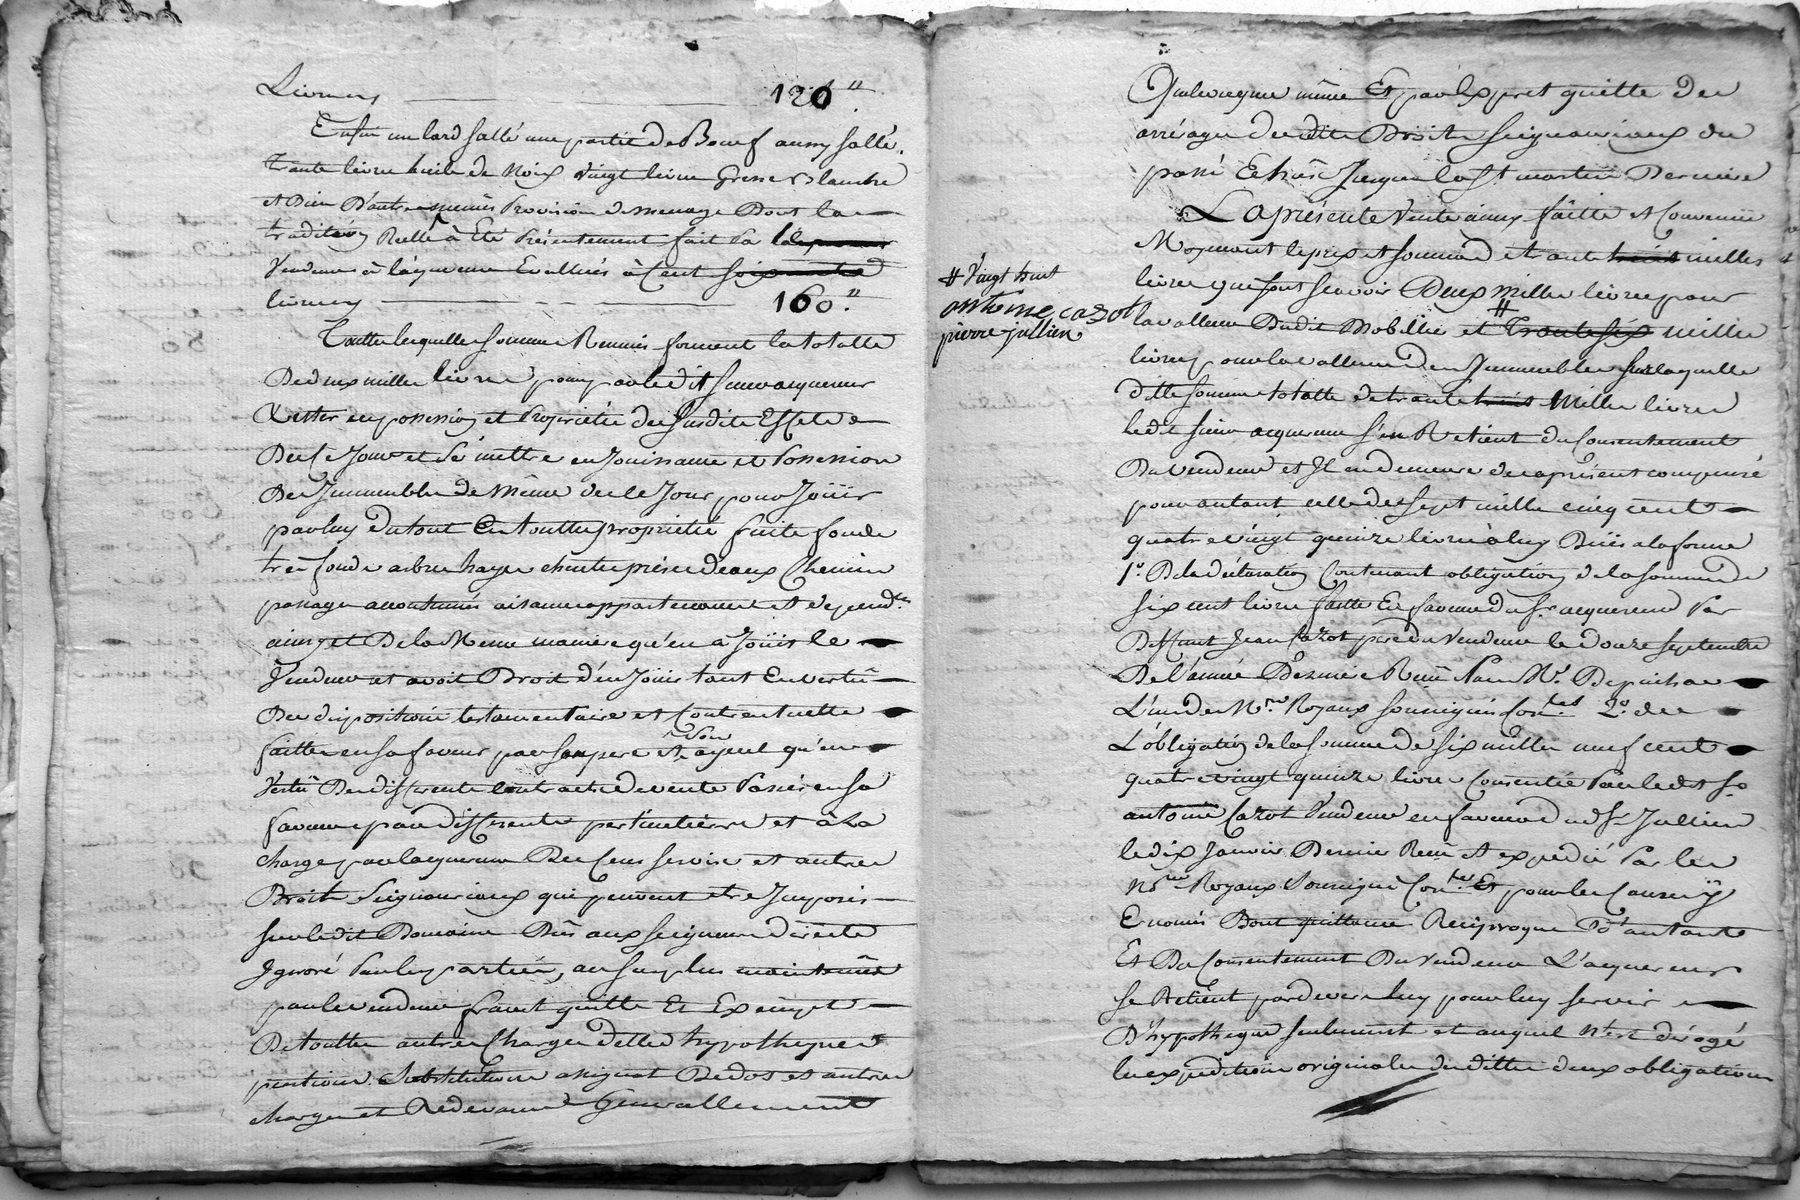 Livres 120"
Enfin un lard sallé une partie de Bœuf aussy sallé,
trante livre huile de Noix vingt livre Gresse Blanche
et Bien D'autre menues Provision de menage Dont la
tradition Reelle à Eté Présentement fait Pa le
Vendeur à l'aquereur Evalluées à Cent soixante
livres 160"
Touttes lesquelles sommes Reunies forment la totalle
De deux mille livres pour par ledit sieur acquereur
Rester en possession et Propriété des susdits Effets
De ce Jour et sé mettre en Jouissance et Possession
Des Jmmeubles De Même de ce Jour pour Joüir
par luy du tout En toutte propriété fruits fonds
tres fonds arbres hayes chentes prises d'eaux Chemins
passages accoutumés aisances appartenances et dépend.ces
ainsy et De la Meme maniere qu'en à Joüit le
Vendeur et avoit Droit d'en Joüir tant En vertu
Des dispositions testamentaire et Contractuelle
faittes en sa faveur par son pere et son ayeul qu'en
vertu Des differents contracts de vente Passés en sa
faveur par differents particuliers et à la
charge par l'acquereur Des Cens servis et autres
Droits Seigneuriaux qui peuvent etre Jmposés
sur ledit Domaine Dûs aux seigneurs directs
Jgnoré Par les parties, au surplus maintenües
par le vendeur franct quitte Et Exempt
De touttes autres Charges dettes hypotheques
pentions Substitutions assignat De dots et autres
charges et Redevances Generallement
Quelconques même Et par Exprest quitte des
arrérages desdits Droits seigneuriaux du
passé Echüs Jusques la St martin Derniere
La présente Vente ainsy faitte et Convenüe
Moyenant le prix et somme de trante mille
livres qui sont scavoir Deux Mille livres pour
# Vingt huit
antoine cazot
pierre jullien
la valleur Dudit Mobillier et # trante six mille
livres pour la valleur des Jmmeubles sur laquelle
ditte somme totalle de trante mille livres
ledit sieur acquereur s'en Retient du Consentement
Du vendeur et Jl en demeure des apresent compensé
pour autant celle de sept mille cinq cent
quatre vingt quinze livres à luy Düe a la forme
1° De la déclaration Contenant obligation de la somme de
six cent livres faitte En faveur du sr acquereur Par
Deffunt Jean Cazot pere du vendeur le douze septembre
De l'année Derniere Reçue Par Me Depuichau
L'un des Nres Royaux soussignés Con.res 2° de
L'obligation de la somme de six mille neuf cent
quatre vingt quinze livres Consentie Par ledit sr
antoine Cazot Vendeur en faveur dudt Sr Jullien
le dix Janvier Dernier Reçue et expedié Par les
Nres Royaux soussigné Con.res Et pour les Causes y
Enoncés Dont quittance Réciproque D'autant
Et Du Consentement Du vendeur L'acquereur
se Retient pardevers luy pour luy servir
D'hypotheque seulement et auquel N'est dérogé
les expeditions originale des dittes deux obligations